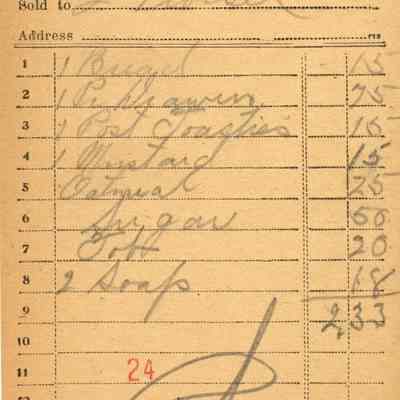 Sold to
Address
1 1 Bread 15
2 1 75
3 1 Post Toasties 15
4 1 Mustard 15
5 Oatmeal 25
6 Sugar 50
7 20
8 2 Soap 18
9 233
10
11 24